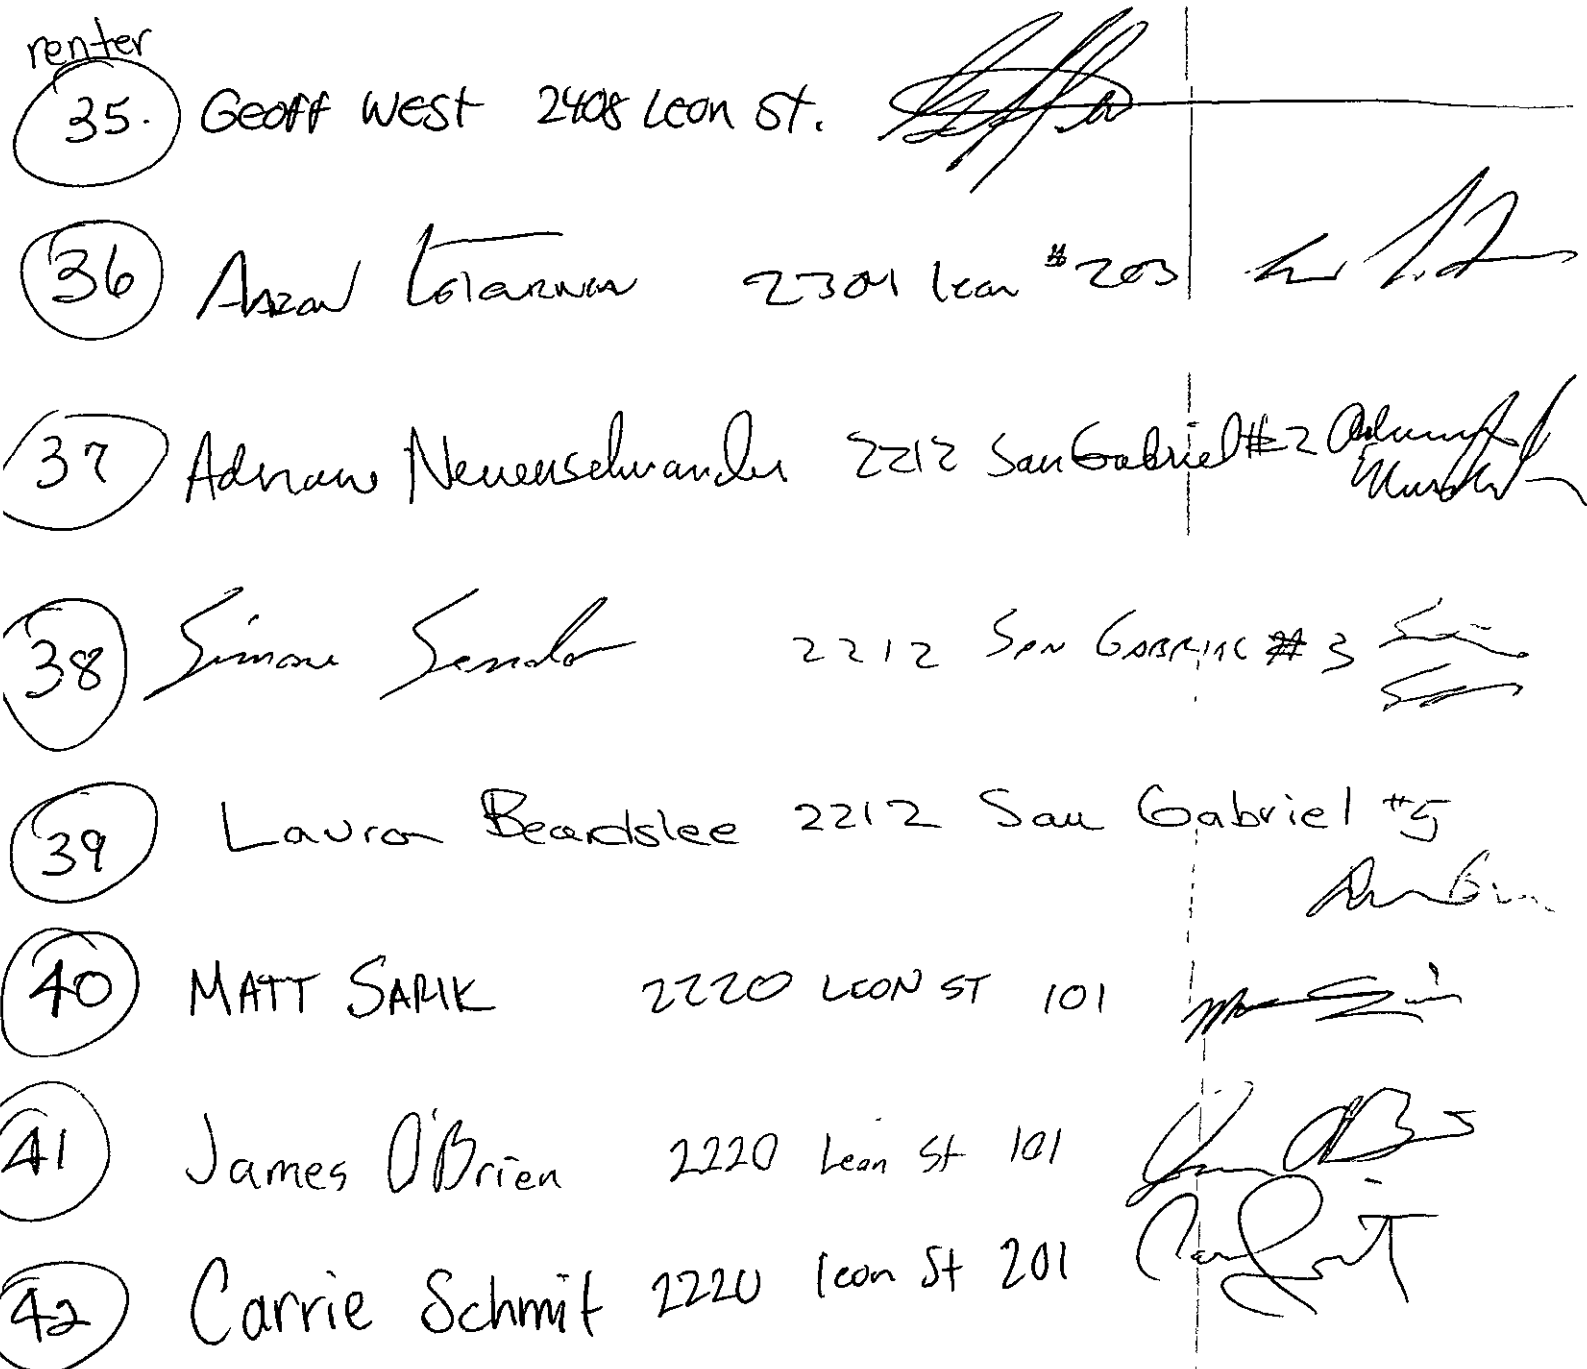 renter
35. Geoff West 2408 Leon St.
36 2304 Leon #203
37 Neuenschwander 2212 San Gabriel #2
38 Simone 2212 San Gabriel #3
39 Lauron Beardslee 2212 San Gabriel #5
40 MATT SARIK 2220 LEON ST 101
41 James O'Brien 2220 Leon St 101
42 Carrie Schmit 2220 leon St 201